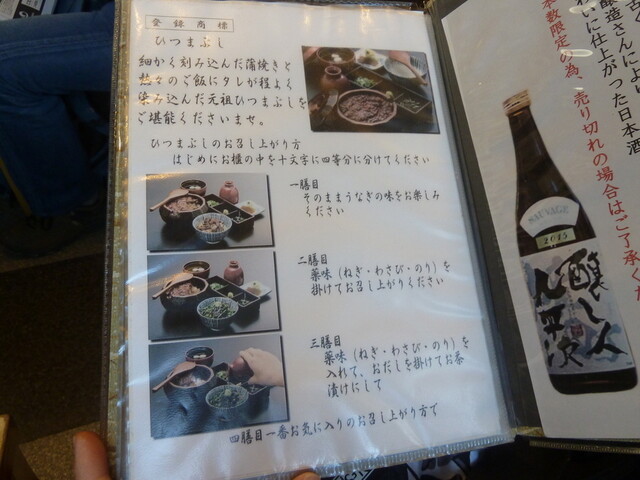 登録商標
ひつまぶし
細かく刻み込んだ蒲焼きと
熱々のご飯にタレが程よく
染み込んだ元祖ひつまぶしを
ご堪能くださいませ。
ひつまぶしのお召し上がり方
はじめにお櫃の中を十文字に四等分に分けてください
一膳目
そのままうなぎの味をお楽しみ
ください
二膳目
薬味（ねぎ・わさび・のり）を
掛けてお召し上がりください
三膳目
薬味（ねぎ・わさび・のり）を
入れて、おだしを掛けてお茶
漬けにして
四膳目一番お気に入りのお召し上がり方で
醸造さんに
いに仕上がった日本酒
本数限定の為、売り切れの場合はご了承くだ
SAUVAGE
2015
醸し人
九平次